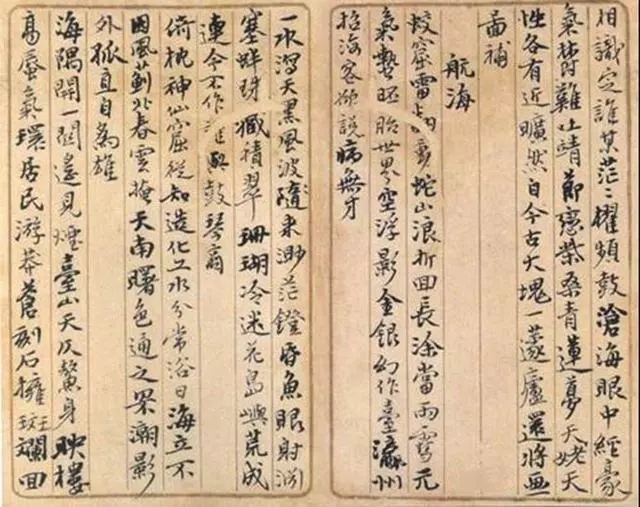 相識定誰某茫〻櫂頻鼓滄海眼中經豪
氣難吐靖節戀柴桑青蓮夢天姥天
性各有近曠然自今古大塊一蘧廬還將無
補
航海
蛟窟雷蛇山浪折回長塗當雨雪元
氣勢胚胎世界空浮影金銀幻作臺瀛州
招海客欲說病無才
一水瀉天黑風波隨來渺茫鐙昏魚眼射淵
塞蚌珠藏積翠珊瑚冷迷花島嶼荒成
連今不作誰與鼓琴商
俯枕神仙窟從知造化工水分常浴日海立不
因風薊北春雲掩天南曙色通之罘潮影
外孤直自為雄
海隅開一關遙見煙臺山天仄鰲身映樓
高蜃氣環居民游莽蒼刻石擁斕回